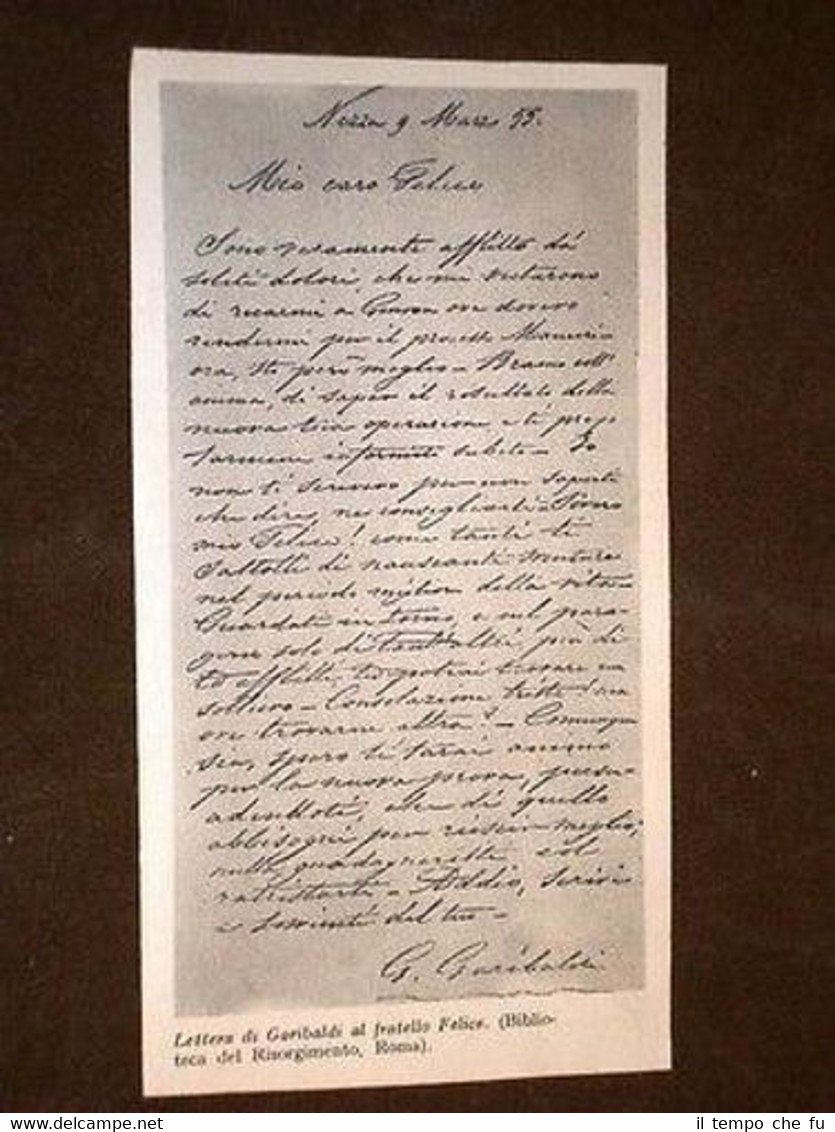 Nizza 9 Marzo 55.
Mio caro Felice
Sono veramente afflitto dà
soliti dolori, che mi vietarono
di recarmi a Genova ove dovevo
rendermi per il processo
ora, sto però meglio - Bramo coll'
anima, di saper il resultato della
nuova tua operazione e ti prego
farmene informato subito - Io
non ti scrivevo per non saperti
che dire, ne consigliarti - Povero
mio Felice! come tanti ti
satolli di nauseanti sventure
nel periodo miglior della vita -
Guardati intorno, e nel para-
gone solo di tant'altri più di
te afflitti, tu potrai trovare un
sollievo - Consolazione triste! ma
ove trovarne altra? - Comunque
sia, spero ti farai animo
per la nuova prova, persua-
adendoti, che di quello
abbisogni per riescir meglio,
nulla guadagneresti, col
rattristarti - Addio, scrivi
e sovvienti del tuo -
G. Garibaldi
Lettera di Garibaldi al fratello Felice. (Biblio-
teca del Risorgimento, Roma).
il tempo che fu